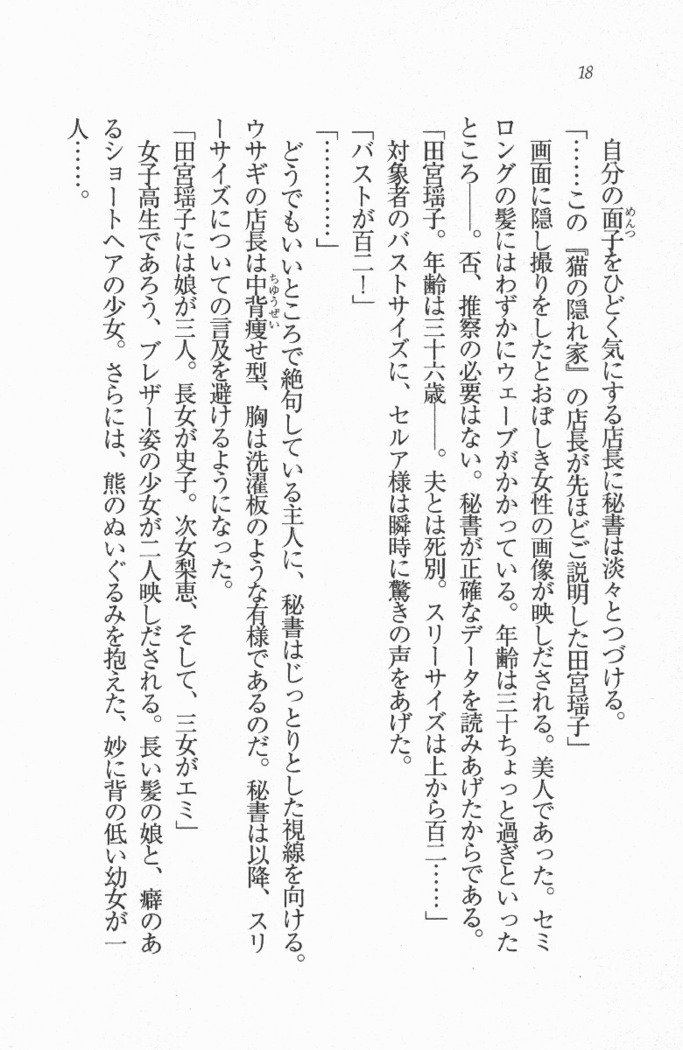 18
自分の面子をひどく気にする店長に秘書は淡々とつづける。
「……この『猫の隠れ家』の店長が先ほどご説明した田宮瑶子」
画面に隠し撮りをしたとおぼしき女性の画像が映しだされる。美人であった。セミ
ロングの髪にはわずかにウェーブがかかっている。年齢は三十ちょっと過ぎといった
ところ――。否、推察の必要はない。秘書が正確なデータを読みあげたからである。
「田宮瑶子。年齢は三十六歳――。夫とは死別。スリーサイズは上から百二……」
対象者のバストサイズに、セルア様は瞬時に驚きの声をあげた。
「バストが百二！」
「…………」
どうでもいいところで絶句している主人に、秘書はじっとりとした視線を向ける。
ウサギの店長は中背痩せ型、胸は洗濯板のような有様であるのだ。秘書は以降、スリ
ーサイズについての言及を避けるようになった。
「田宮瑶子には娘が三人。長女が史子。次女梨恵、そして、三女がエミ」
女子高生であろう、ブレザー姿の少女が二人映しだされる。長い髪の娘と、癖のあ
るショートヘアの少女。さらには、熊のぬいぐるみを抱えた、妙に背の低い幼女が一
人……。
めんつ
ちゆうぜい